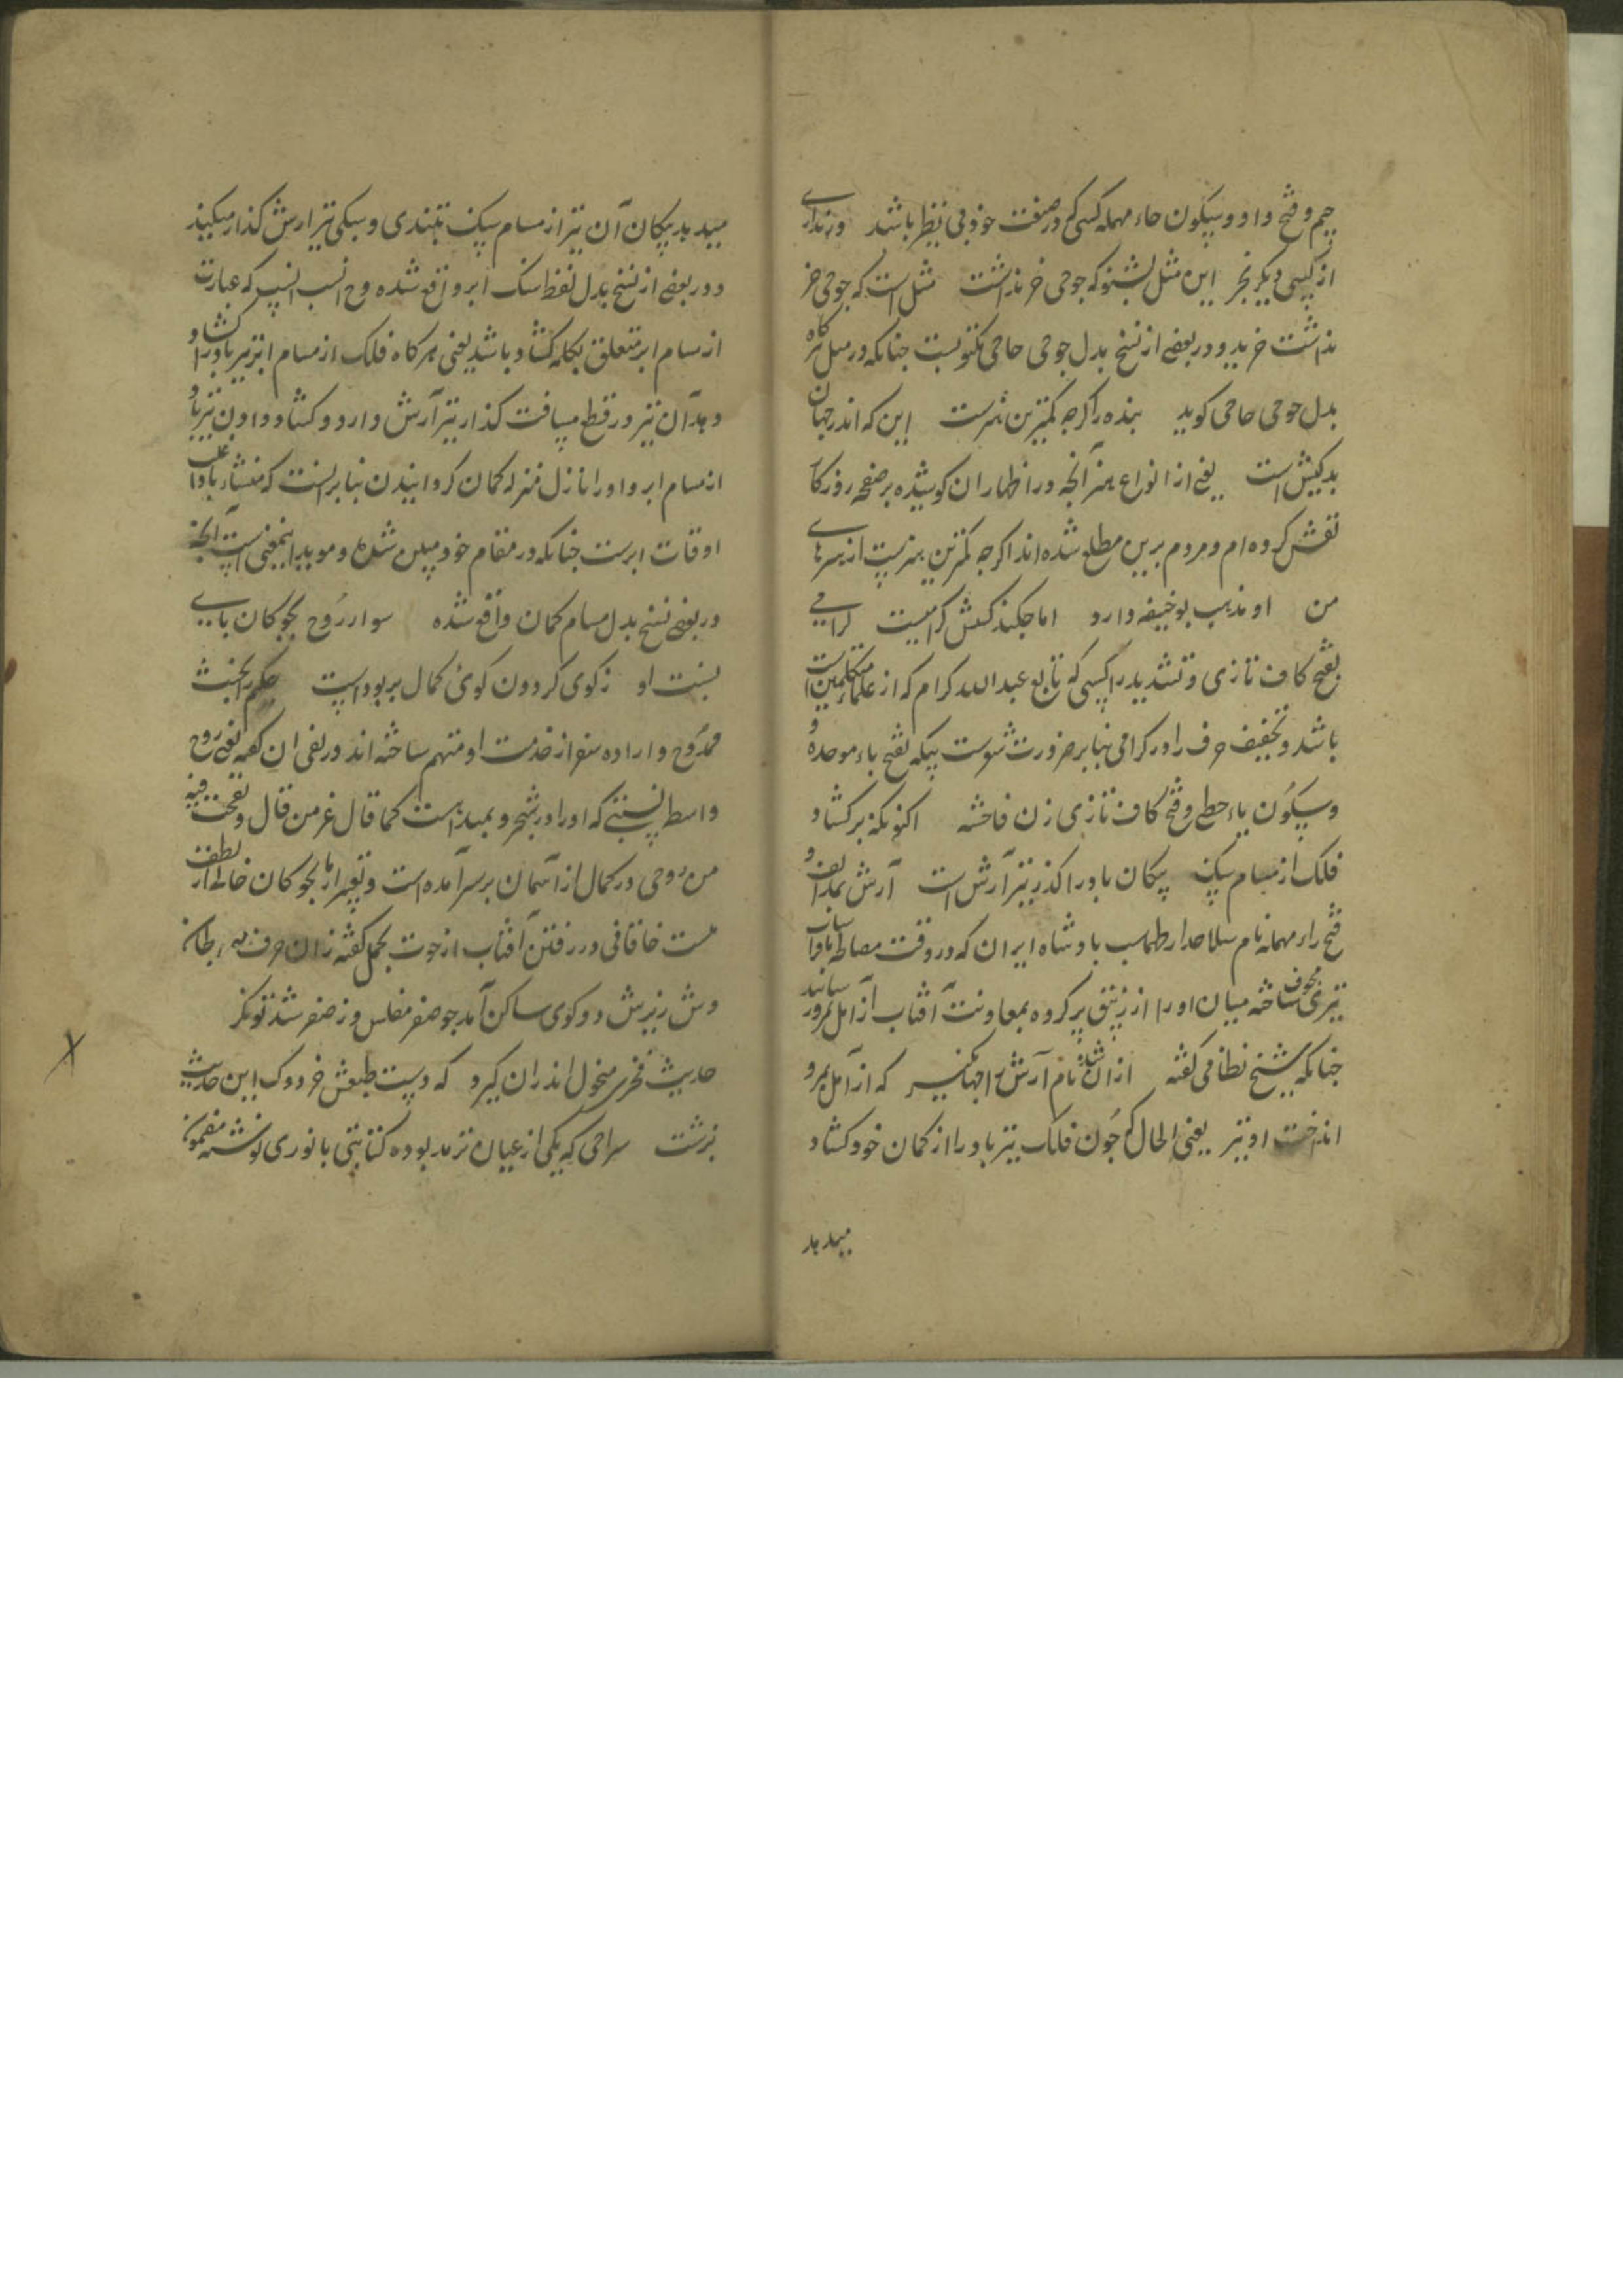 جیم و فتح واو و سکون حاء مهمله کسی که در صنعت خود بی نظیر باشد ور نداری
از کسی دیگر بخر این مثل بشنو که جوحی خر نداشت مثل است که جوحی خر
نداشت خرید و در بعضی از نسخ بدل جوحی حاجی مکتوبست چنانکه در مثل
بدل جوحی حاجی گوید بنده را گرچه کمترین هنرست این که اندر جهان
بد کیش است یعنی از انواع هنر آنچه در اظهار ان کوشیده بر صفحه روزکار
نقش کرده ام و مردم برین مطلع شده اند اگرچه کمترین هنریست از هنرهای
من او مذهب بوحنیفه دارد اما چکند کنش کرامیست کرامی
بفتح کاف تازی و تشدید را کسی که تابع عبد الله کرام که از علماء متکلمین است
باشد و تخفیف حرف را در کرامی بنا بر ضرورت شعرست بیکه بفتح باء موحده
و سکون یاء حطی و فتح کاف تازی زن فاحشه اکنونکه بر کشاد
فلک از مسام پیکان باد را گذر تیر آرش است آرش بمد الف و
فتح راء مهمله نام سلاحدار طهماسب پادشاه ایران که در وقت مصالحه با افراسیاب
تیری مجوف ساخته میان او را از زیبق پر کرده بمعاونت آفتاب از آمل بمرو رسانید
چنانکه شیخ نظامی گفته ازان شد نام آرش را جهانگیر که از آمل بمرو
انداخت او تیر یعنی الحال که چون فلک تیر باد را از کمان خود کشاد
میدهد
میدهد پیکان آن تیر از مسام بتندی و سبکی تیر ارش گذار میکند
و در بعضی از نسخ بدل لفظ سنک ابر واقع شده و ح انسب انسب که عبارت
از مسام ابر متعلق بکله کشاد باشد یعنی هرگاه فلک از مسام ابر تیر باد را کشاد
و بد آن تیر در قطع مسافت گذار تیر آرش دارد و کشاد دادن تیر باد
از مسام ابر و او را نازل منزله کمان گردانیدن بنا بر انست که منشاء باد در اغلب
اوقات ابرست چنانکه در مقام خود مبین شده و موید اینمعنی است آنچه
در بعضی نسخ بدل مسام کمان واقع شده سوار روح بچوکان بای
بست او زکوی گردون کوی کمال بربوداست حکیم را بخبث
ممدوح و اراده سفر از خدمت او متهم ساخته اند در نفی ان گفته یعنی روح
واسط نسبتی که او را در شجر و بمبداست کما قال عز من قال و نفخت فیه
من روحی در کمال از آسمان بر سر آمده است و تعبیر از با بچوکان خالی از لطف
نیست خاقانی در رفتن آفتاب از حوت بحمل گفته زان حرف سرطان
وش زیرش دو کوی ساکن آمد چو صفر مفلس وز صفر شد توانگر
حدیث فخری منحول اندران گیرد که دست طبعش خر دوک این حدیث
نرشت سراجی که یکی از اعیان ترمد بوده کتابتی بانوری نوشته مضمون